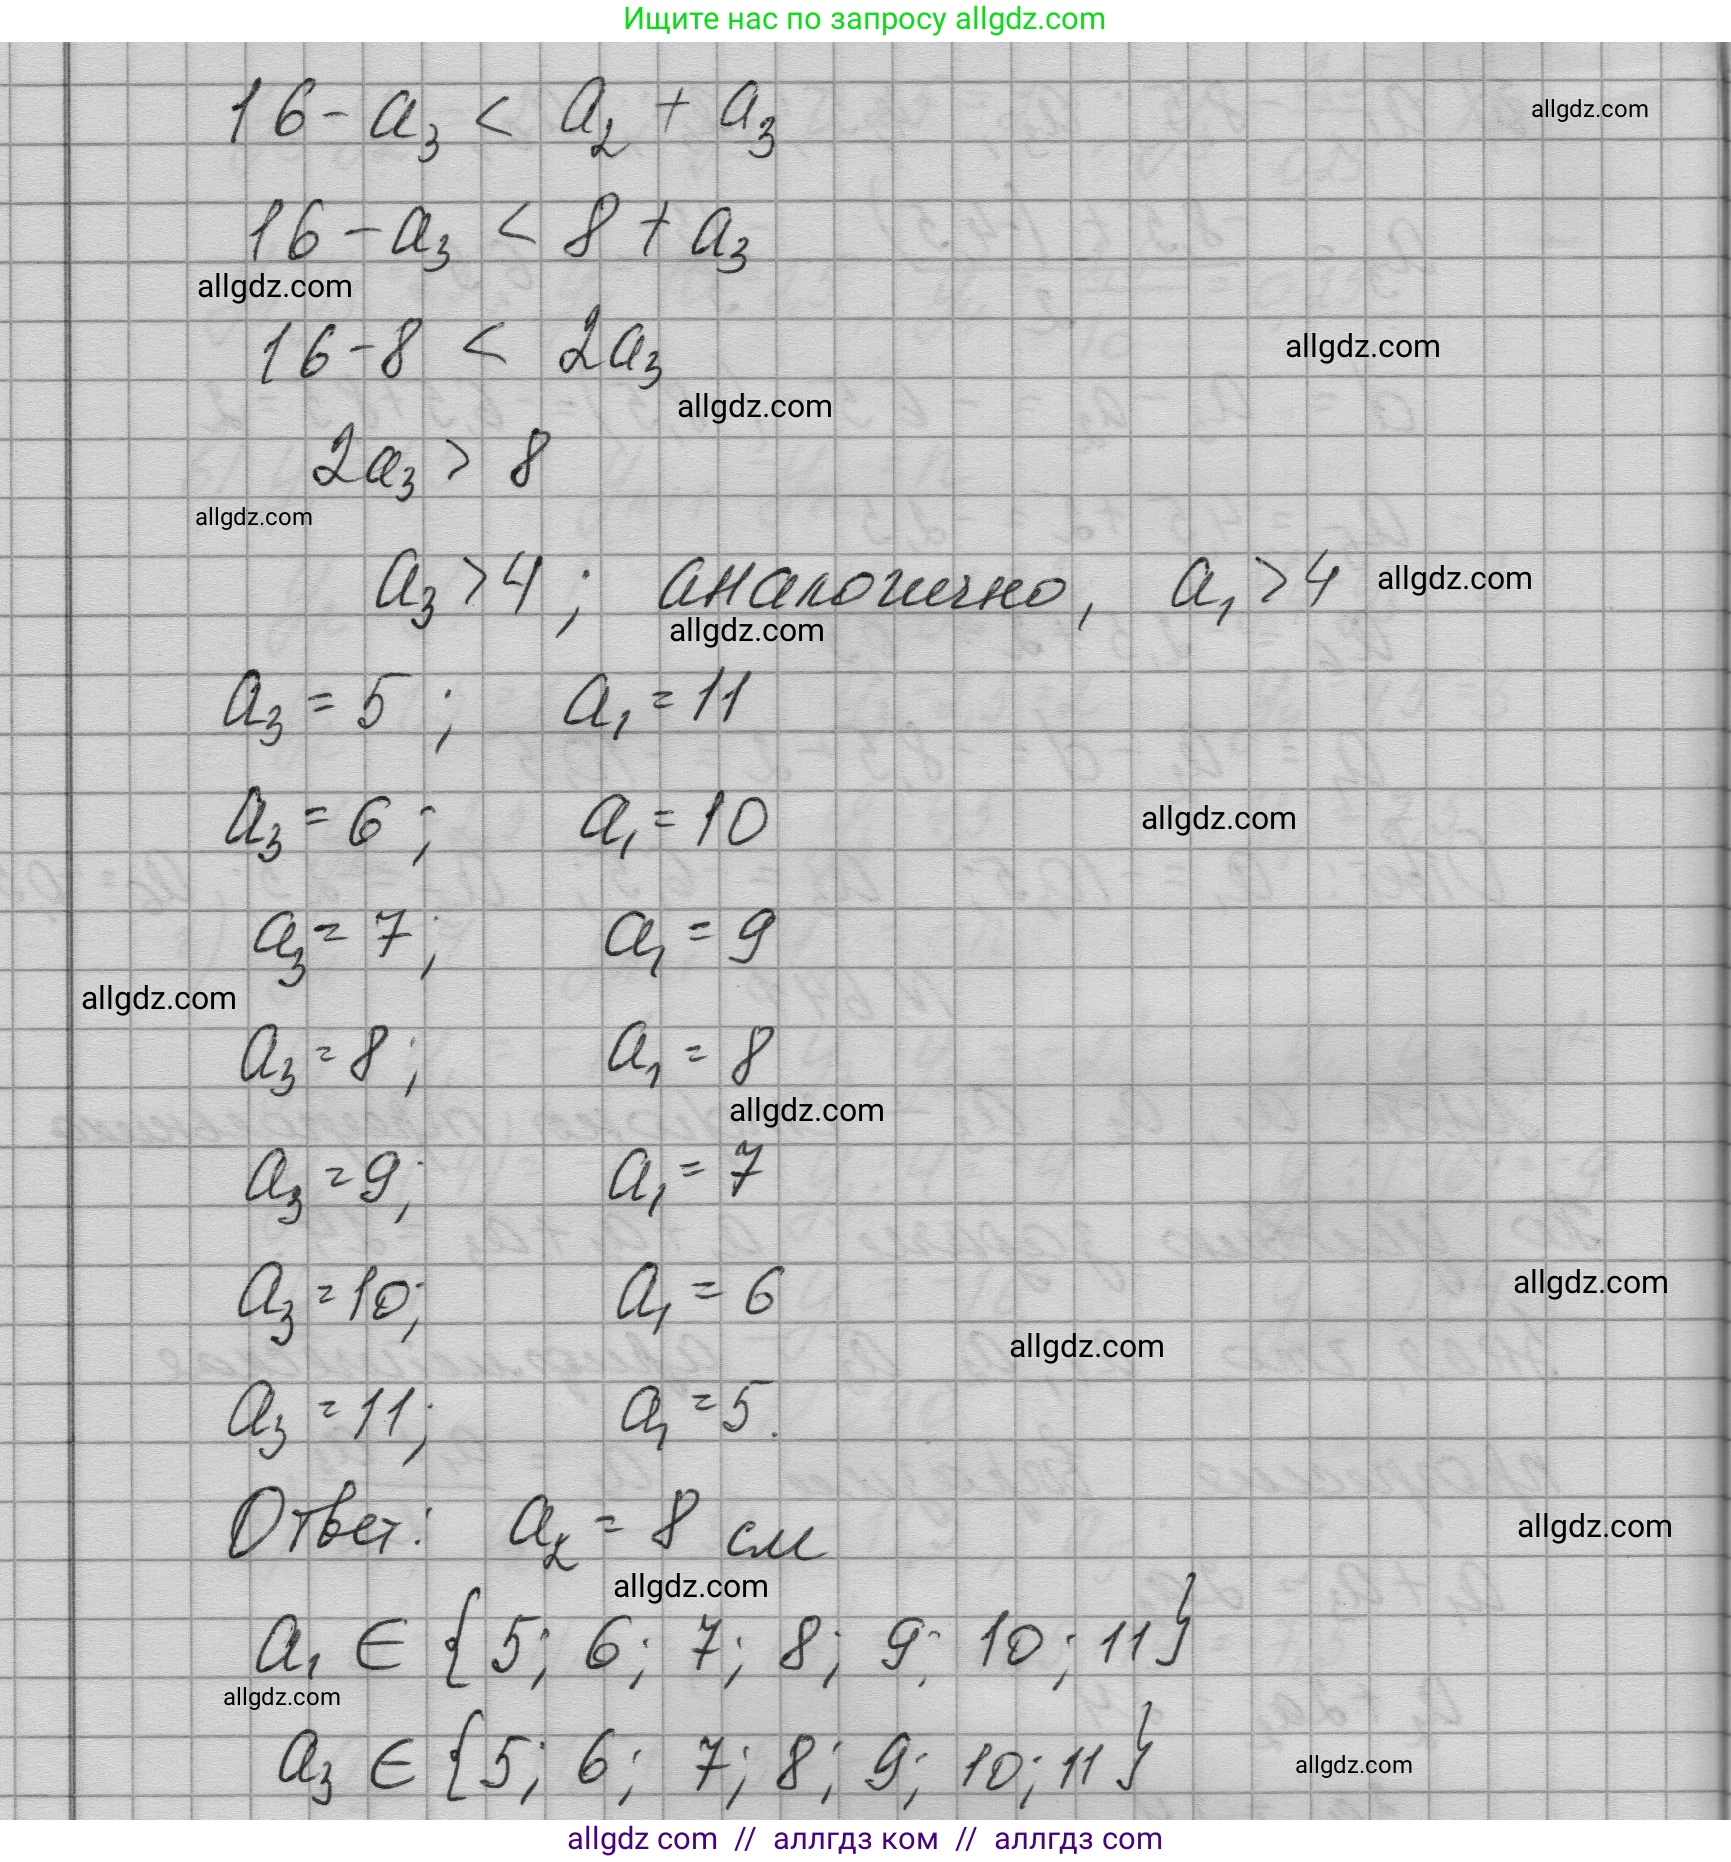 Ищите нас по запросу allgdz.com
16 - a₃ < a₂ + a₃
allgdz.com
16 - a₃ < 8 + a₃
allgdz.com
16 - 8 < 2a₃
allgdz.com
allgdz.com
2a₃ > 8
allgdz.com
a₃ > 4 ; аналогично, a₁ > 4
allgdz.com
allgdz.com
a₃ = 5 ; a₁ = 11
a₃ = 6 ; a₁ = 10
allgdz.com
a₃ = 7 ; a₁ = 9
allgdz.com
a₃ = 8 ; a₁ = 8
allgdz.com
a₃ = 9 ; a₁ = 7
a₃ = 10 ; a₁ = 6
allgdz.com
allgdz.com
a₃ = 11 ; a₁ = 5.
Ответ: a₂ = 8 см
allgdz.com
allgdz.com
a₁ ∈ {5; 6; 7; 8; 9; 10; 11}
allgdz.com
a₃ ∈ {5; 6; 7; 8; 9; 10; 11}
allgdz.com
allgdz com // аллгдз ком // аллгдз com